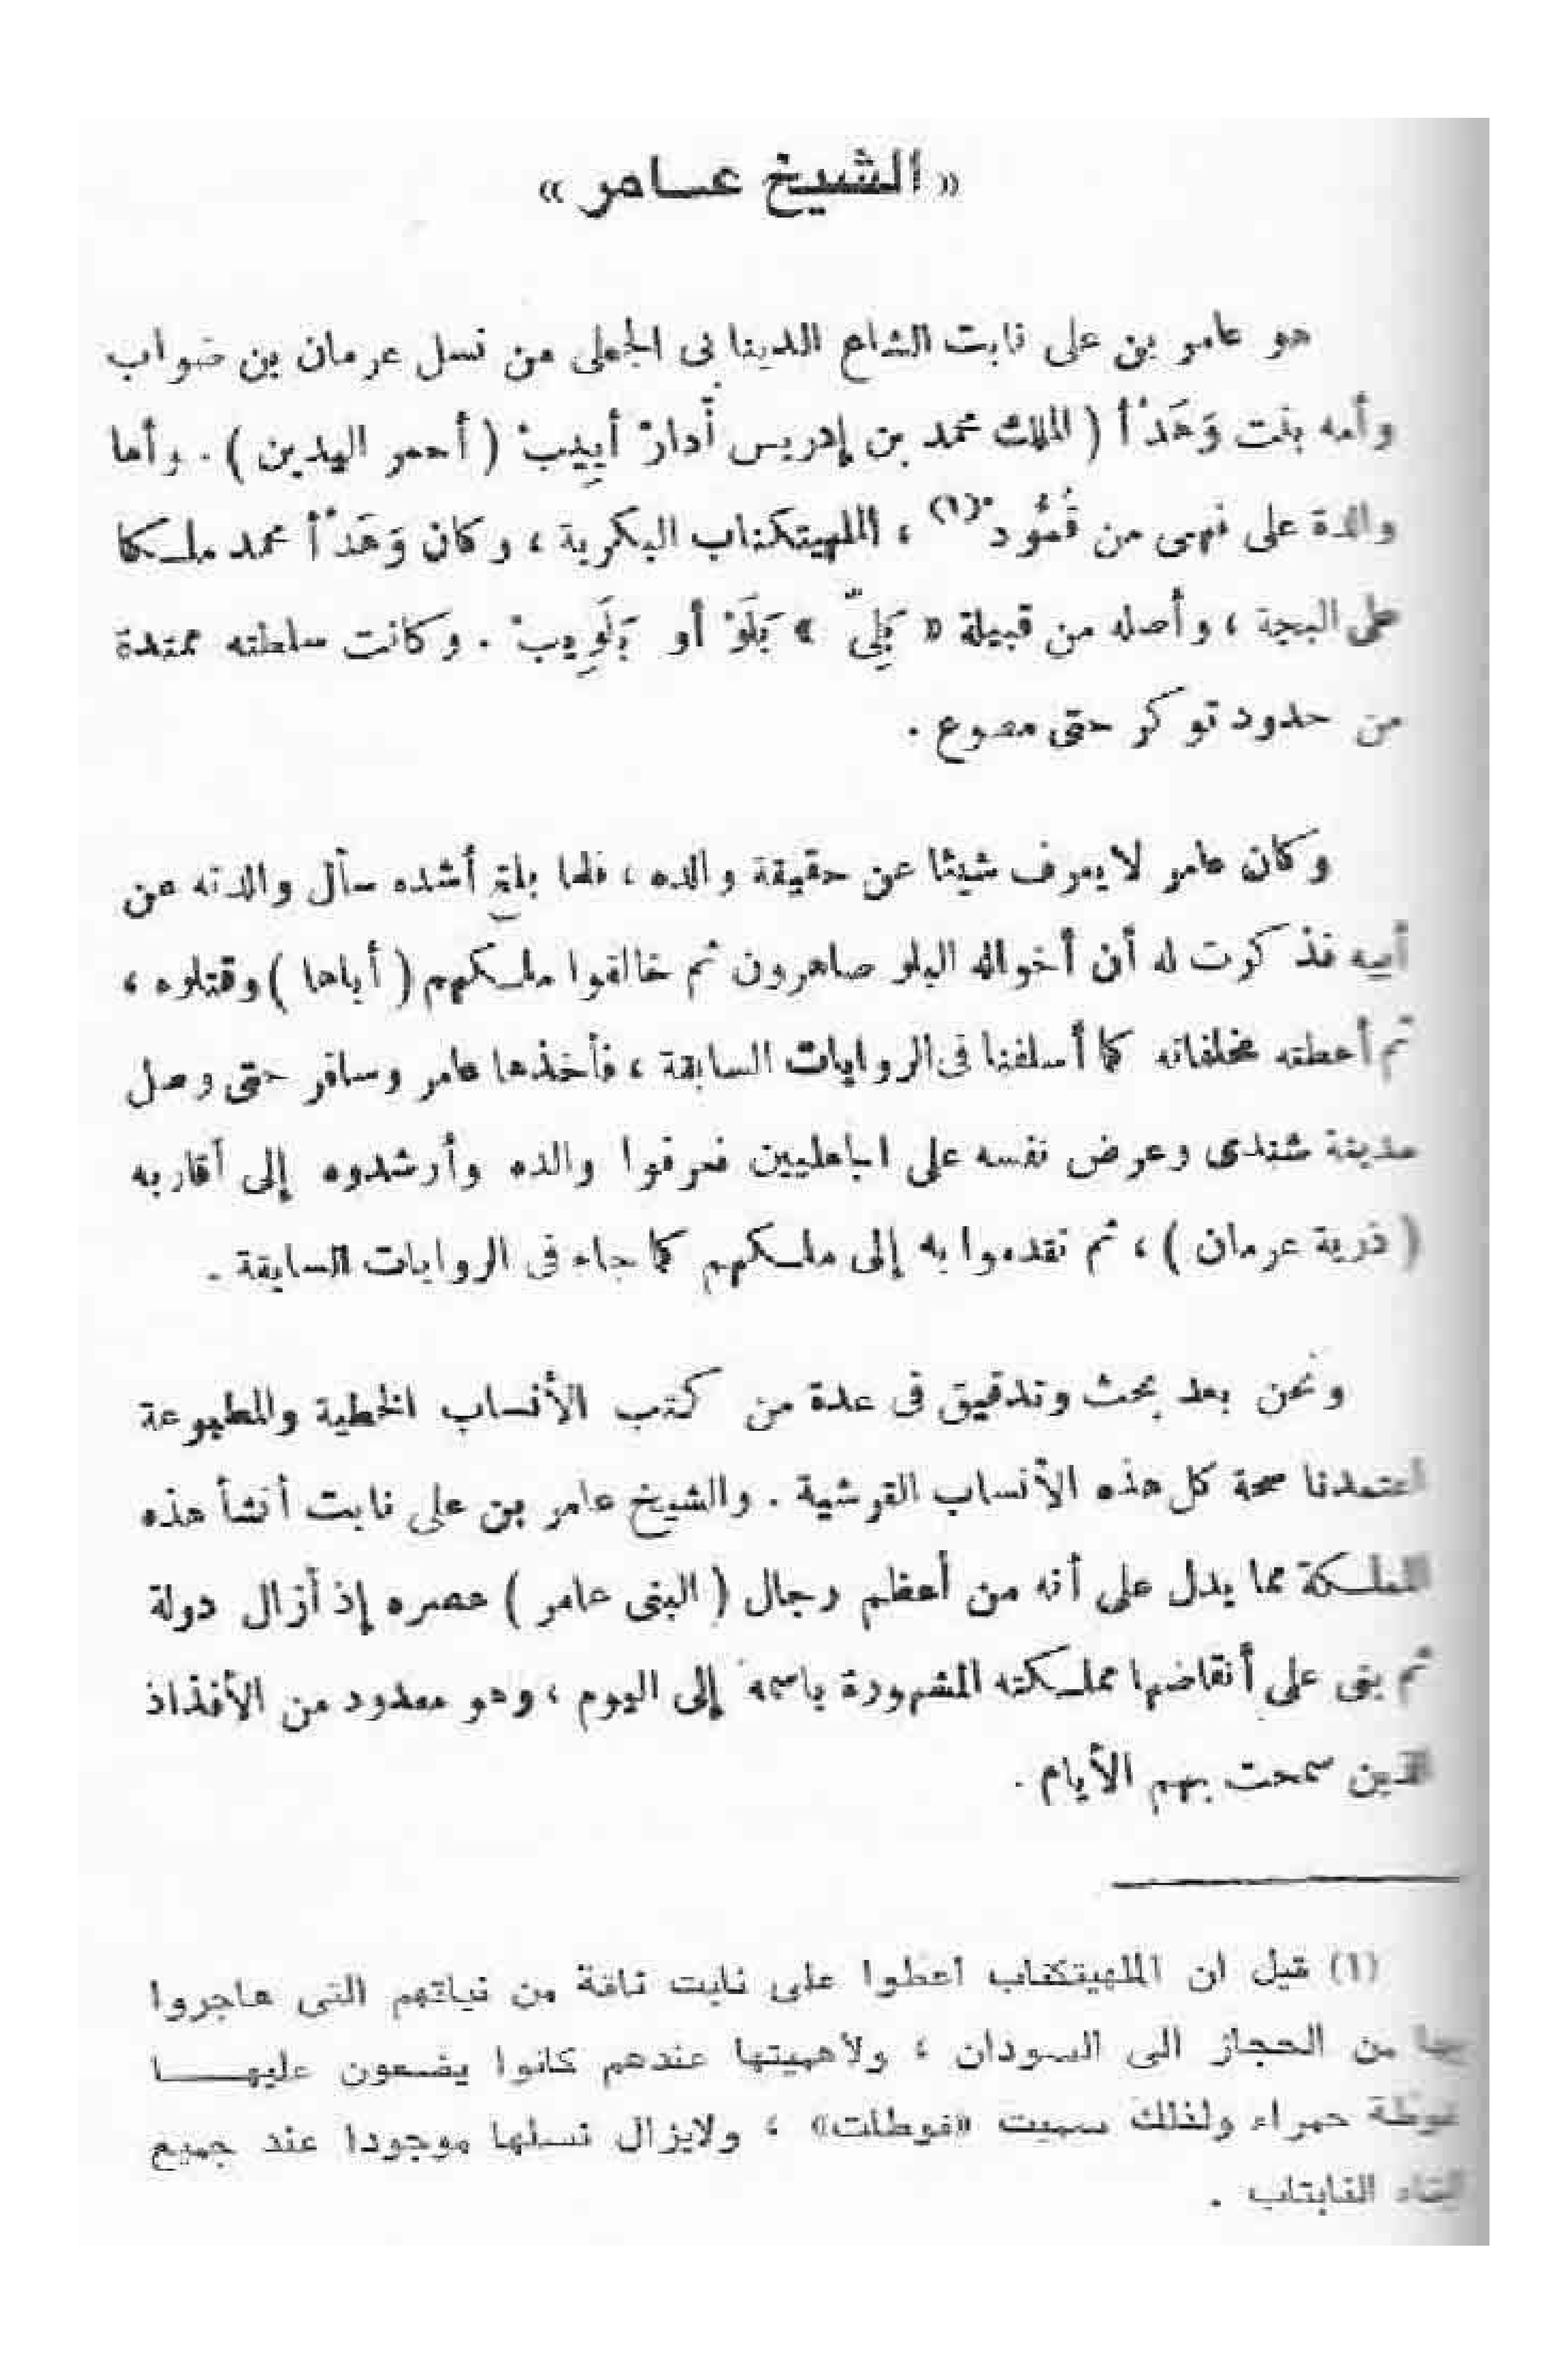 « الشيخ عـامر »
هو عامر بن على نابت الشاع الدينا بى الجعلى من نسل عرمان بن ضواب
وأمه بنت وَهَدْأ ( الملك محمد بن إدريس أدارْ أبِيبْ ( أحمر اليدين ) . وأما
والدة على فهى من قُمُودْ (١) ، الملهيتكناب البكرية ، وكان وَهَدْأ محمد ملكا
على البجة ، وأصله من قبيلة « بَلِىّ » بَلَوْ أو بَلَوِيبْ . وكانت سلطته ممتدة
من حدود توكر حتى مصوع .
وكان عامر لا يعرف شيئا عن حقيقة والده ، فلما بلغ أشده سأل والدته عن
أبيه فذكرت له أن أخواله البلو صاهرون ثم خالفوا ملكهم ( أباها ) وقتلوه ،
ثم أعطته مخلفاته كما أسلفنا فى الروايات السابقة ، فأخذها عامر وسافر حتى وصل
مدينة شندى وعرض نفسه على الجاعليين فعرفوا والده وأرشدوه إلى أقاربه
( ذرية عرمان ) ، ثم تقدموا به إلى ملكهم كما جاء فى الروايات السابقة .
ونحن بعد بحث وتدقيق فى عدة من كتب الأنساب الخطية والمطبوعة
اعتمدنا صحة كل هذه الأنساب القرشية . والشيخ عامر بن على نابت أنشأ هذه
المملكة مما يدل على أنه من أعظم رجال ( البنى عامر ) عصره إذ أزال دولة
ثم بنى على أنقاضها مملكته المشهورة باسمه إلى اليوم ، وهو معدود من الأفذاذ
الذين سمحت بهم الأيام .
(١) قيل ان الملهيتكناب اعطوا على نابت ناقة من نياقهم التى هاجروا
بها من الحجاز الى السودان ، ولاهميتها عندهم كانوا يضعون عليهـــا
فوطة حمراء ولذلك سميت «فوطات» ، ولايزال نسلها موجودا عند جميع
النابتاب .